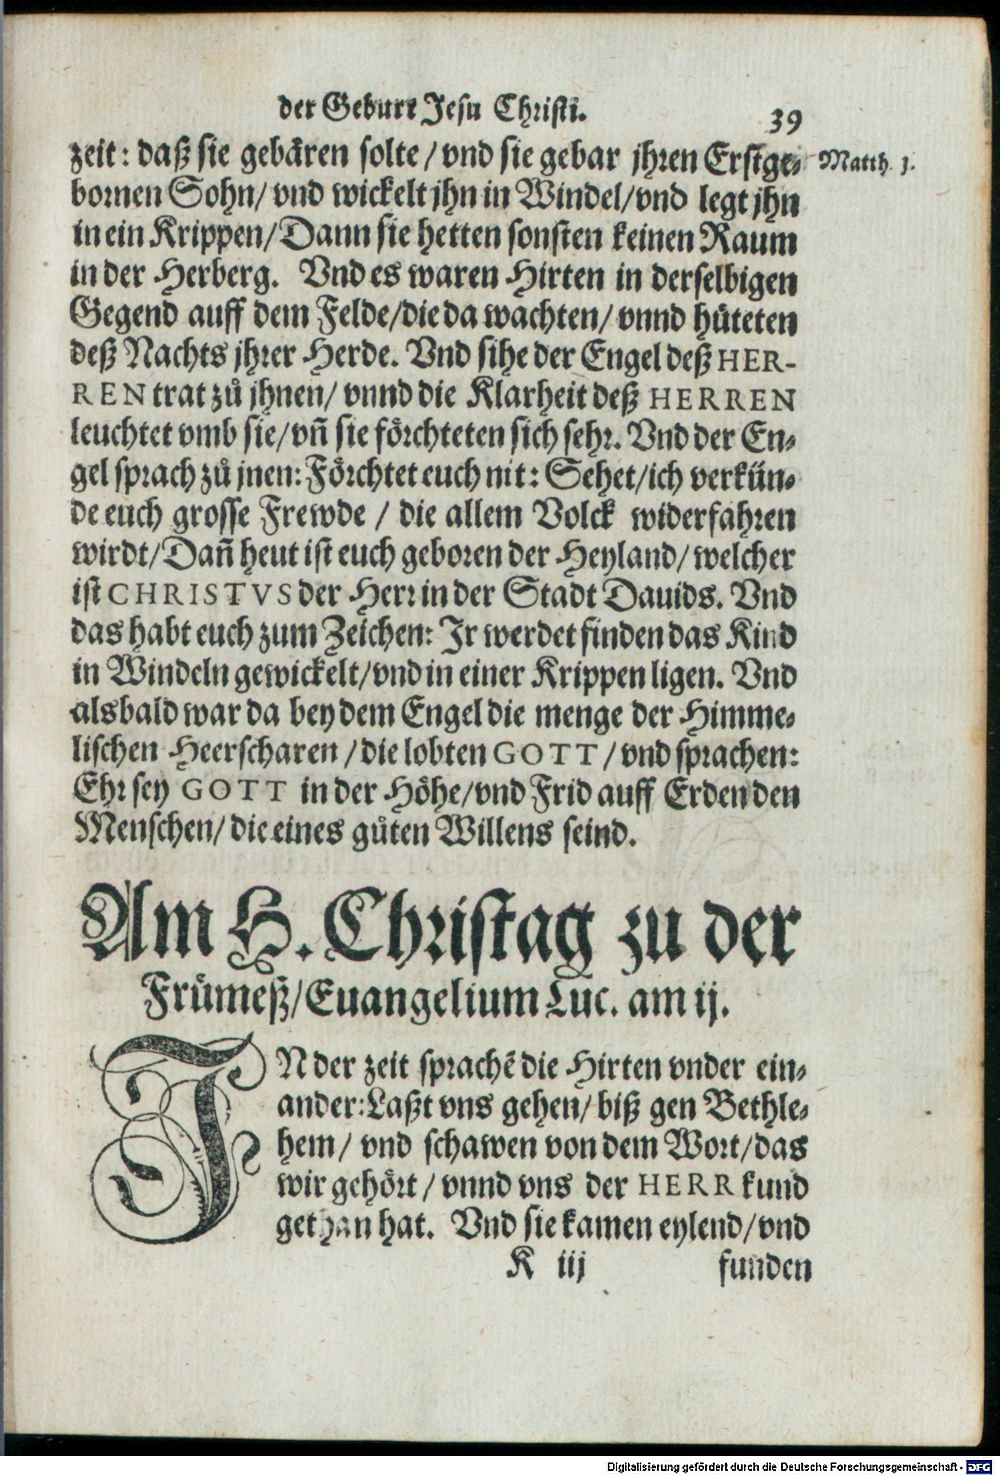 der Geburt Jesu Christi.
39
zeit: daß sie gebären solte/ vnd sie gebar jhren Erstge-
Matth. j.
bornen Sohn/ vnd wickelt jhn in Windel/ vnd legt jhn
in ein Krippen/ Dann sie hetten sonsten keinen Raum
in der Herberg. Vnd es waren Hirten in derselbigen
Gegend auff dem Felde/ die da wachten/ vnnd hüteten
deß Nachts jhrer Herde. Vnd sihe der Engel deß HER-
REN trat zů jhnen/ vnnd die Klarheit deß HERREN
leuchtet vmb sie/ vñ sie förchteten sich sehr. Vnd der En-
gel sprach zů jnen: Förchtet euch nit: Sehet/ ich verkün-
de euch grosse Frewde / die allem Volck widerfahren
wirdt/ Dañ heut ist euch geboren der Heyland/ welcher
ist CHRISTVS der Herr in der Stadt Dauids. Vnd
das habt euch zum Zeichen: Ir werdet finden das Kind
in Windeln gewickelt/ vnd in einer Krippen ligen. Vnd
alsbald war da bey dem Engel die menge der Himme-
lischen Heerscharen / die lobten GOTT / vnd sprachen:
Ehr sey GOTT in der Höhe/ vnd Frid auff Erden den
Menschen/ die eines gůten Willens seind.
Am H. Christag zu der
Frümeß/ Euangelium Luc. am ij.
IN der zeit sprachẽ die Hirten vnder ein-
ander: Laßt vns gehen/ biß gen Bethle-
hem/ vnd schawen von dem Wort/ das
wir gehört / vnnd vns der HERR kund
gethan hat. Vnd sie kamen eylend/ vnd
K iij
funden
Digitalisierung gefördert durch die Deutsche Forschungsgemeinschaft - DFG